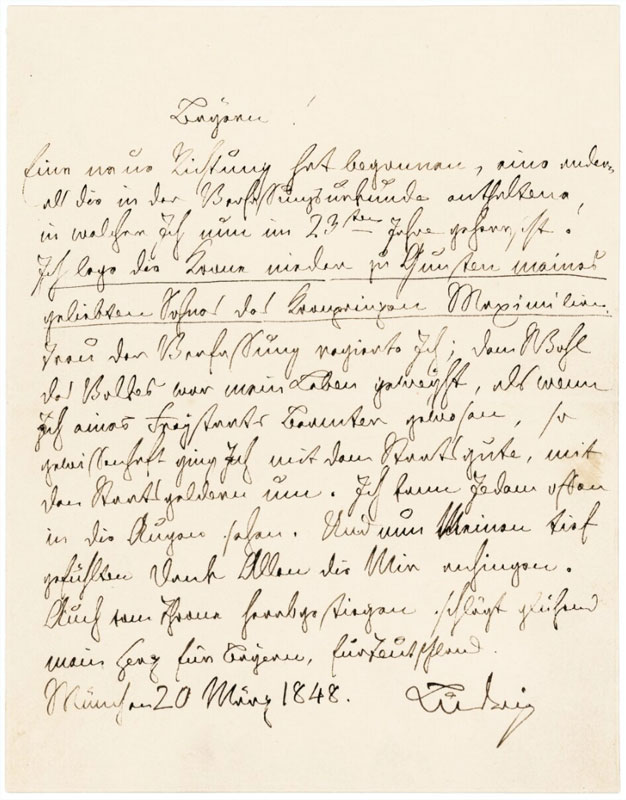 Bayern!
Eine neue Richtung hat begonnen, eine andere,
als die in der Verfassungsurkunde enthaltene,
in welcher Ich nun im 23ten Jahre geherrscht.
Ich lege die Krone nieder zu Gunsten meines
geliebten Sohnes des Kronprinzen Maximilian.
Treu der Verfassung regierte Ich; dem Wohl
des Volkes war mein Leben geweyht, als wenn
Ich eines Freystaats Beamter gewesen, so
gewissenhaft ging Ich mit dem Staatsgute, mit
den Staatsgeldern um. Ich kann Jedem offen
in die Augen sehen. Und nun Meinen tief
gefühlten Dank Allen die Mir anhingen.
Auch vom Throne herabgestiegen schlägt glühend
mein Herz für Bayern, für Teutschland.
München 20 März 1848. Ludwig